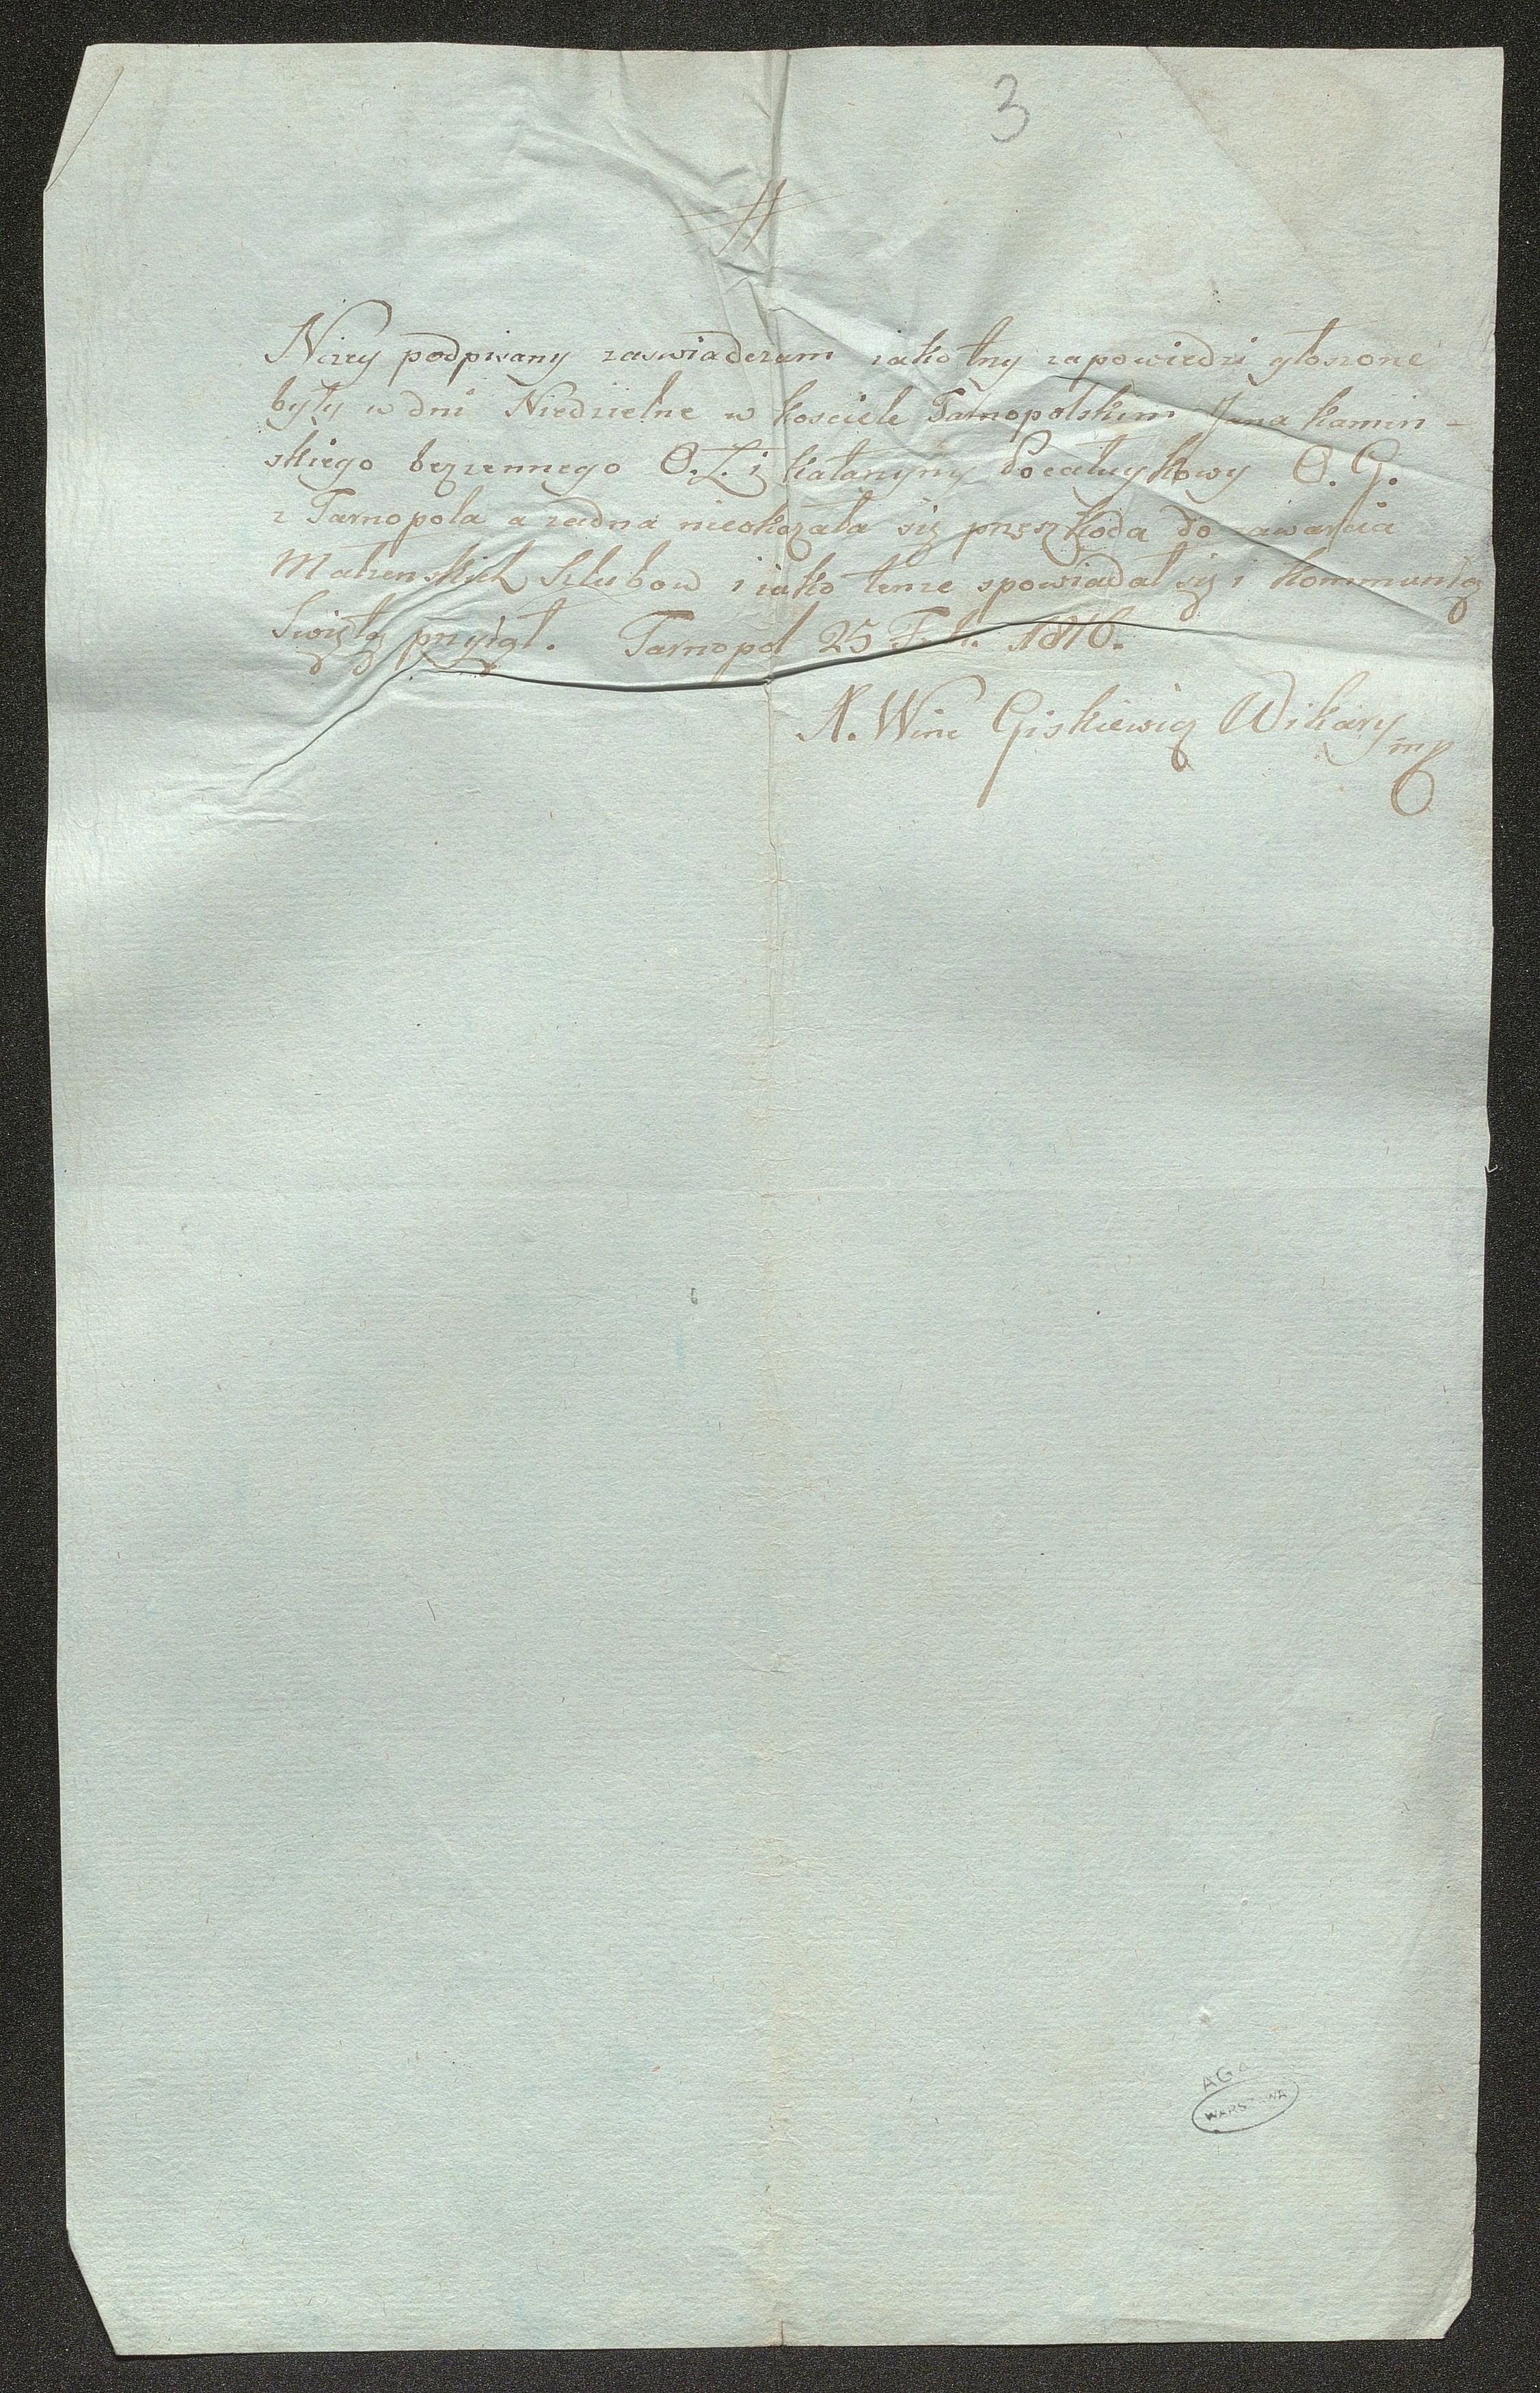 3
Nizey podpisany zaswiadczam iako try zapowiedzi głoszone
były w dni Niedzielne w kosciele Tarnopolskim Jana Kamin-
skiego bezzennego O. Ł. i Katarzyny O. G.
z Tarnopola a zadna nieokazała się przeszkoda do zawarcia
Małzenskich Szlubow i iako tenze spowiadał się i kommunię
Swiętą przyiął. Tarnopol 25 Feb. 1816.
X. Winc Giskiewicz Wikary
mp
AGA
WARSZAWA